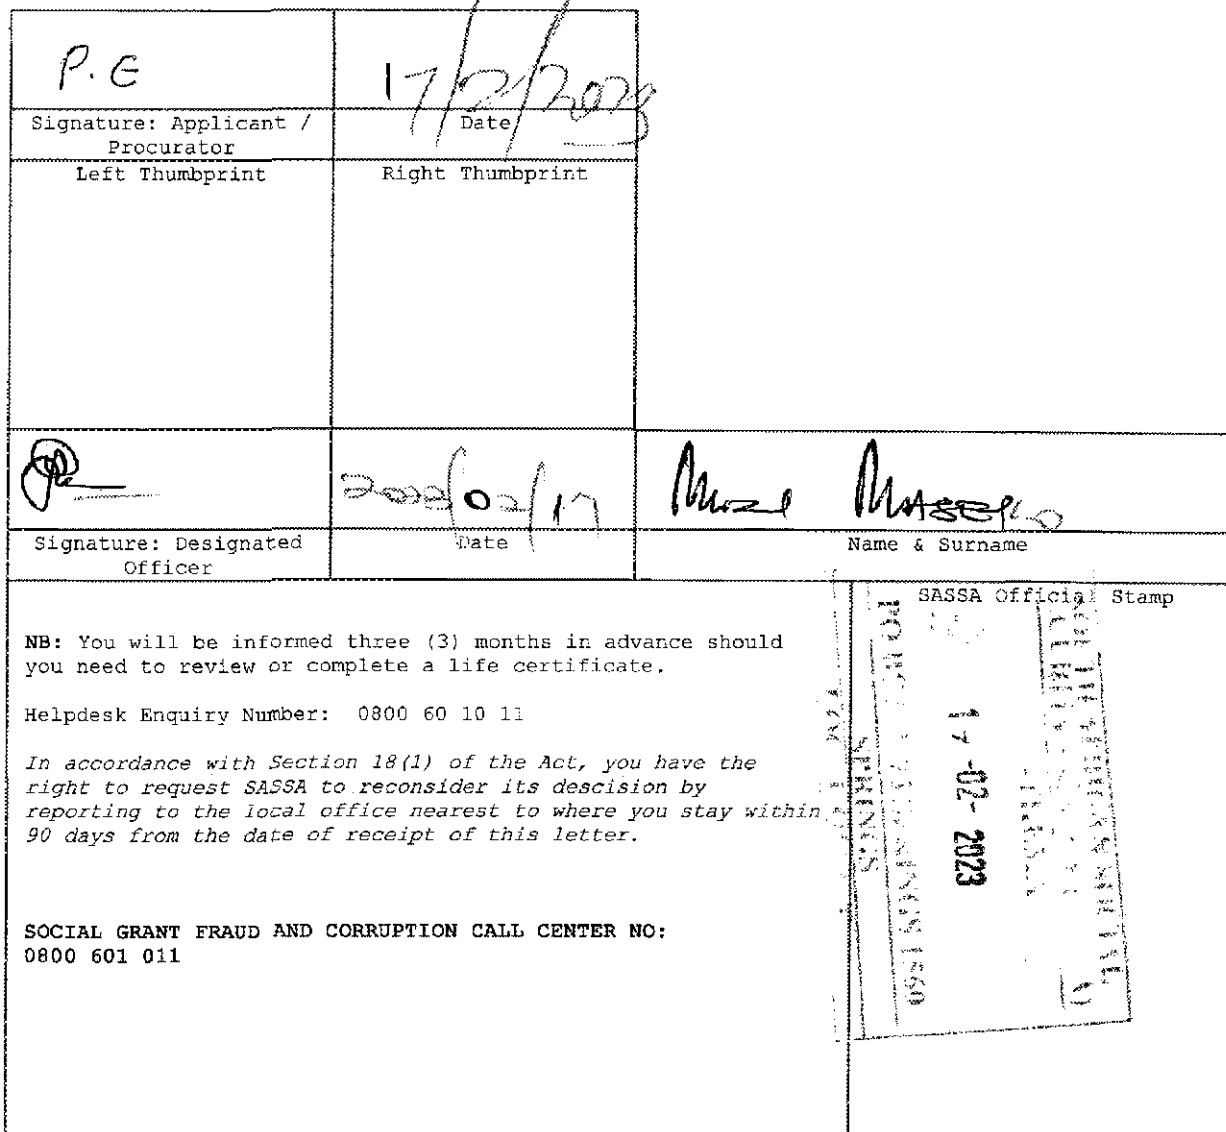 P.E
17/2/2023
Signature: Applicant /
Procurator
Date
Left Thumbprint
Right Thumbprint
02/17
Signature: Designated
Officer
Date
Name & Surname
SASSA Official Stamp
NB: You will be informed three (3) months in advance should
you need to review or complete a life certificate.
Helpdesk Enquiry Number: 0800 60 10 11
In accordance with Section 18(1) of the Act, you have the
right to request SASSA to reconsider its descision by
reporting to the local office nearest to where you stay within
90 days from the date of receipt of this letter.
SOCIAL GRANT FRAUD AND CORRUPTION CALL CENTER NO:
0800 601 011
17 -02- 2023
SPRINGS